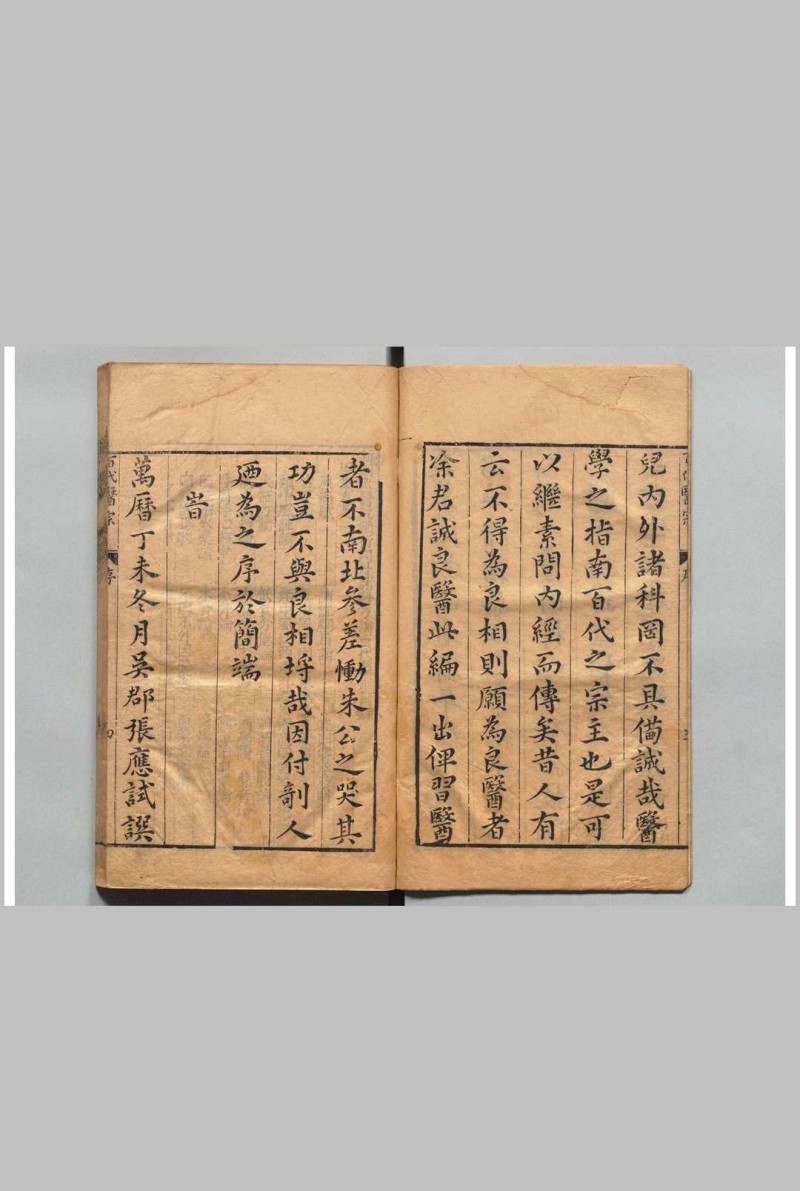 兒內外諸科罔不具俻誠哉醫
學之指南百代之宗主也是可
以繼素問內經而傳矣昔人有
云不得為良相則願為良醫者
凃君誠良醫此編一出俾習醫
者不南北參差慟朱公之哭其
功豈不與良相埒哉因付剞人
廼為之序於簡端
旹
萬曆丁未冬月吳郡張應試譔
百代醫宗
序